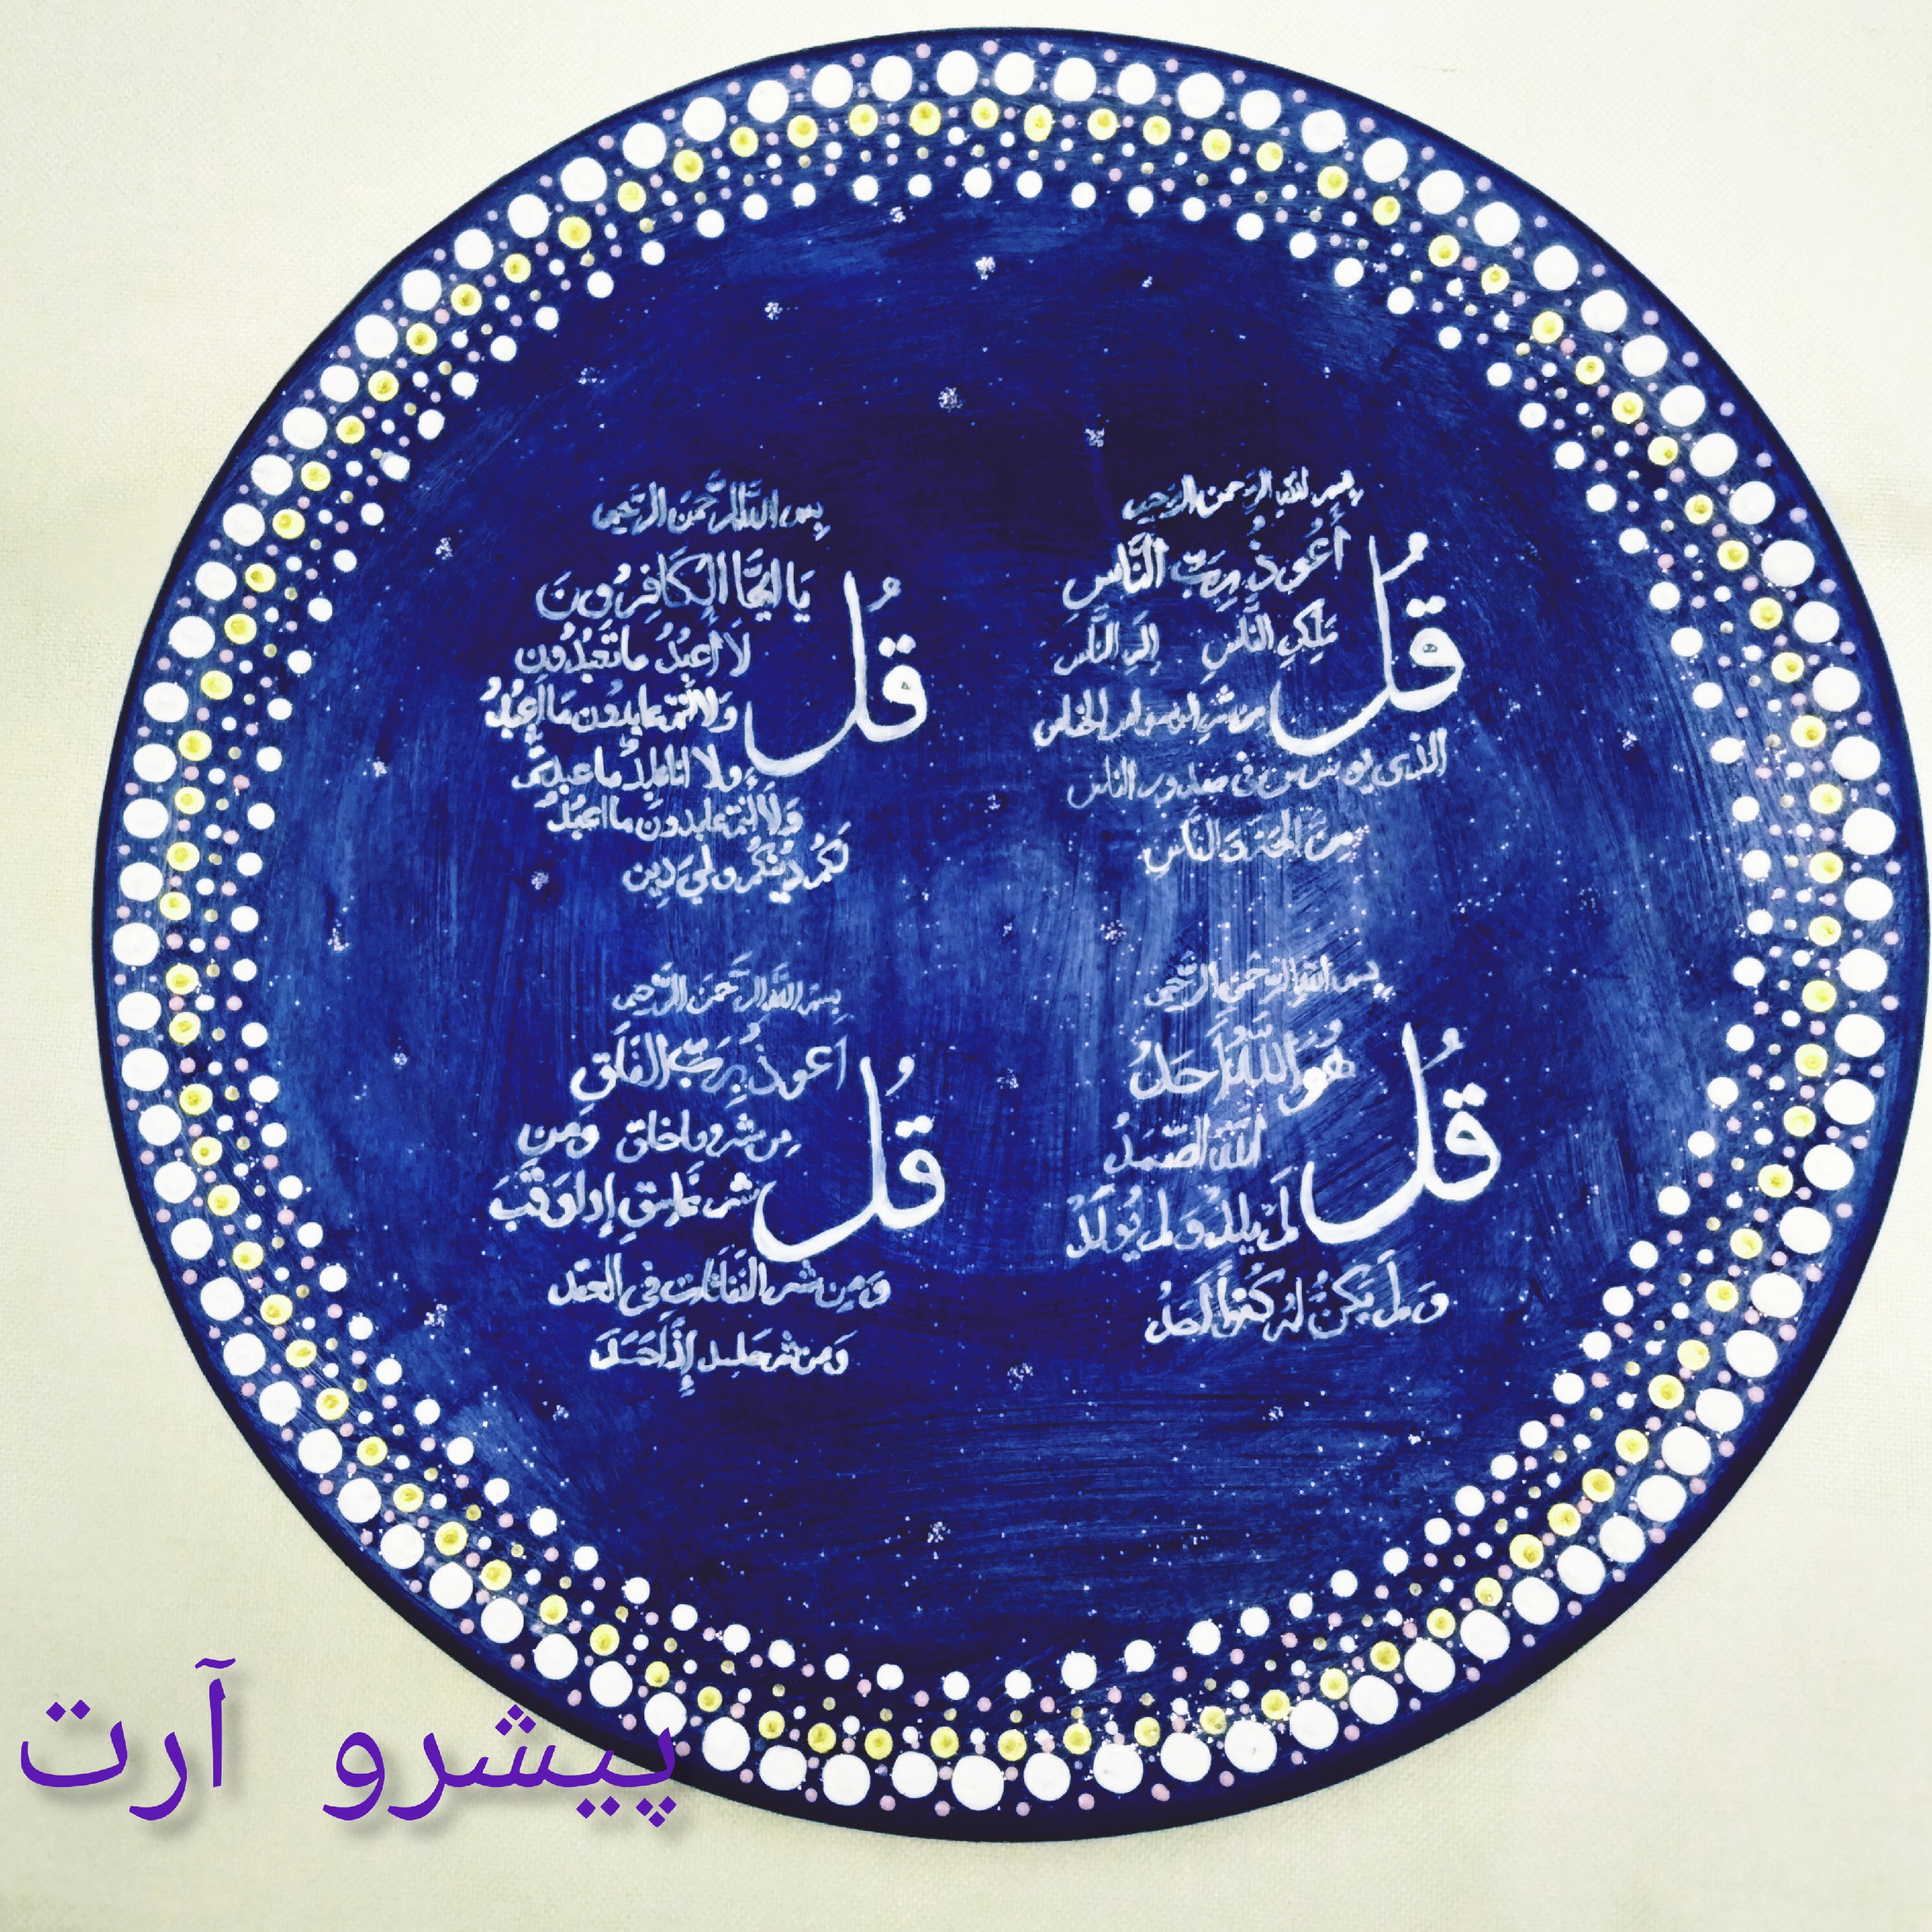 بسم الله الرحمن الرحيم
قُل أَعُوذُ بِرَبِّ النَّاسِ
مَلِكِ النَّاسِ إِلَهِ النَّاسِ
من شر الوسواس الخناس
الذي يوسوس في صدور الناس
مِنَ الجنة وَ النَّاس
بِسم اللَّه الرَّحمَن الرَّحيم
قُل يَا ايُّهَا الكَافِرُونَ
لَا أعبُدُ ما تَعبُدُون
وَلا انتُم عابدُون مَا اعبُدُ
ولا انا عابدٌ ما عبدتم
وَلا انتم عابدونَ ما اعبُدُ
لَكُم دِينُكُم ولِيَ دِين
بسم الله الرحمن الرحيم
قُل هُوَ اللَّهُ أَحَدُ
اللَّهُ الصَّمَدُ
لَم يَلِدْ وَ لم يُولَدْ
وَ لَم يَكُنْ لَهُ كُفُوًا أَحَدُ
بِسم اللَّه الرَّحمَن الرَّحيم
قُل اَعوذُ بِرَبِّ الفَلَقِ
مِن شر ما خلق وَمِن
شر غَاسِقٍ إذا وَقَبَ
وَمِن شر النَّفَّاثَاتِ في العقد
وَمِن شر حاسد إِذَا حَسَدَ
پیشرو آرت